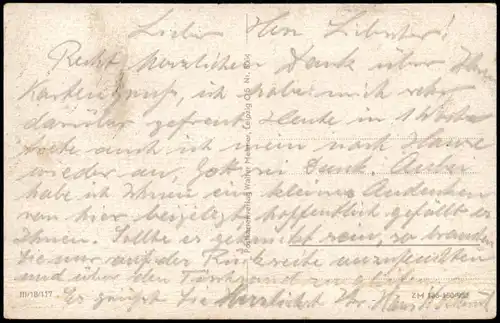 Lieber Herr Liebster!
Recht herzlichen Dank über Ihre
Kartengruß, ich habe mich sehr
darüber gefreut. Heute in 1 Woche
trete auch ich mein nach Hause
wieder an, Gott sei Dank. Außer
habe ich Ihnen ein kleines Andenken
von hier beigelegt, hoffentlich gefällt es
Ihnen. Sollte es geknickt sein, so brauchen
Sie nur auf der Rückseite anzufeuchten
und über den
Es grüßt Sie Herzlichst Ihr
Postkartenverlag Walter Meißner, Leipzig O5 Nr.
III/18/137